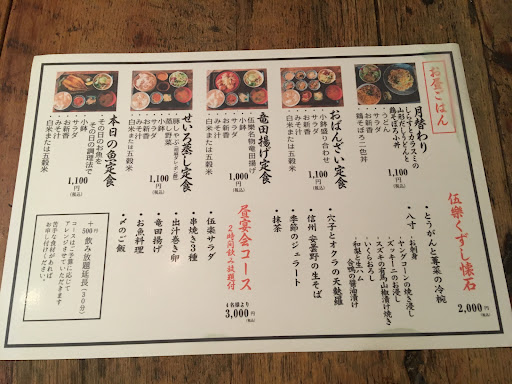 お昼ごはん
月替わり
しらすとカラスミの
山形だしうどんと
鶏そぼろ小丼
うどん
お新香
鶏そぼろ二色丼
1,100円
(税込)
おばんざい定食
小鉢盛り合わせ
サラダ
お新香
みそ汁
白米または五穀米
1,100円
(税込)
竜田揚げ定食
伍樂名物竜田揚げ
小鉢
サラダ
お新香
みそ汁
白米または五穀米
1,000円
(税込)
せいろ蒸し定食
豚しゃぶ
蒸し野菜
小鉢
お新香
みそ汁
白米または五穀米
1,100円
(税込)
本日の魚定食
その日のお魚を
その日の調理法で
小鉢
サラダ
お新香
みそ汁
白米または五穀米
1,100円
(税込)
伍樂くずし懐石
2,000円
(税込)
・とうがんと蓴菜の冷椀
・八寸
・お刺身
・ヤングコーンの焼き浸し
・ズッキーニのお浸し
・スズキの有馬山椒漬け焼き
・いくらおろし
・和梨と生ハム
・合鴨の醤油漬け
・穴子とオクラの天麩羅
・信州 安曇野の生そば
・季節のジェラート
・抹茶
昼宴会コース
2時間飲み放題付
4名様より
3,000円
(税込)
・伍楽サラダ
・串焼き3種
・出汁巻き卵
・竜田揚げ
・お魚料理
・〆のご飯
+500円 飲み放題延長(30分)
コースはご予算に応じて
アレンジさせていただきます
苦手な食材があれば
お申し付けくださいませ。